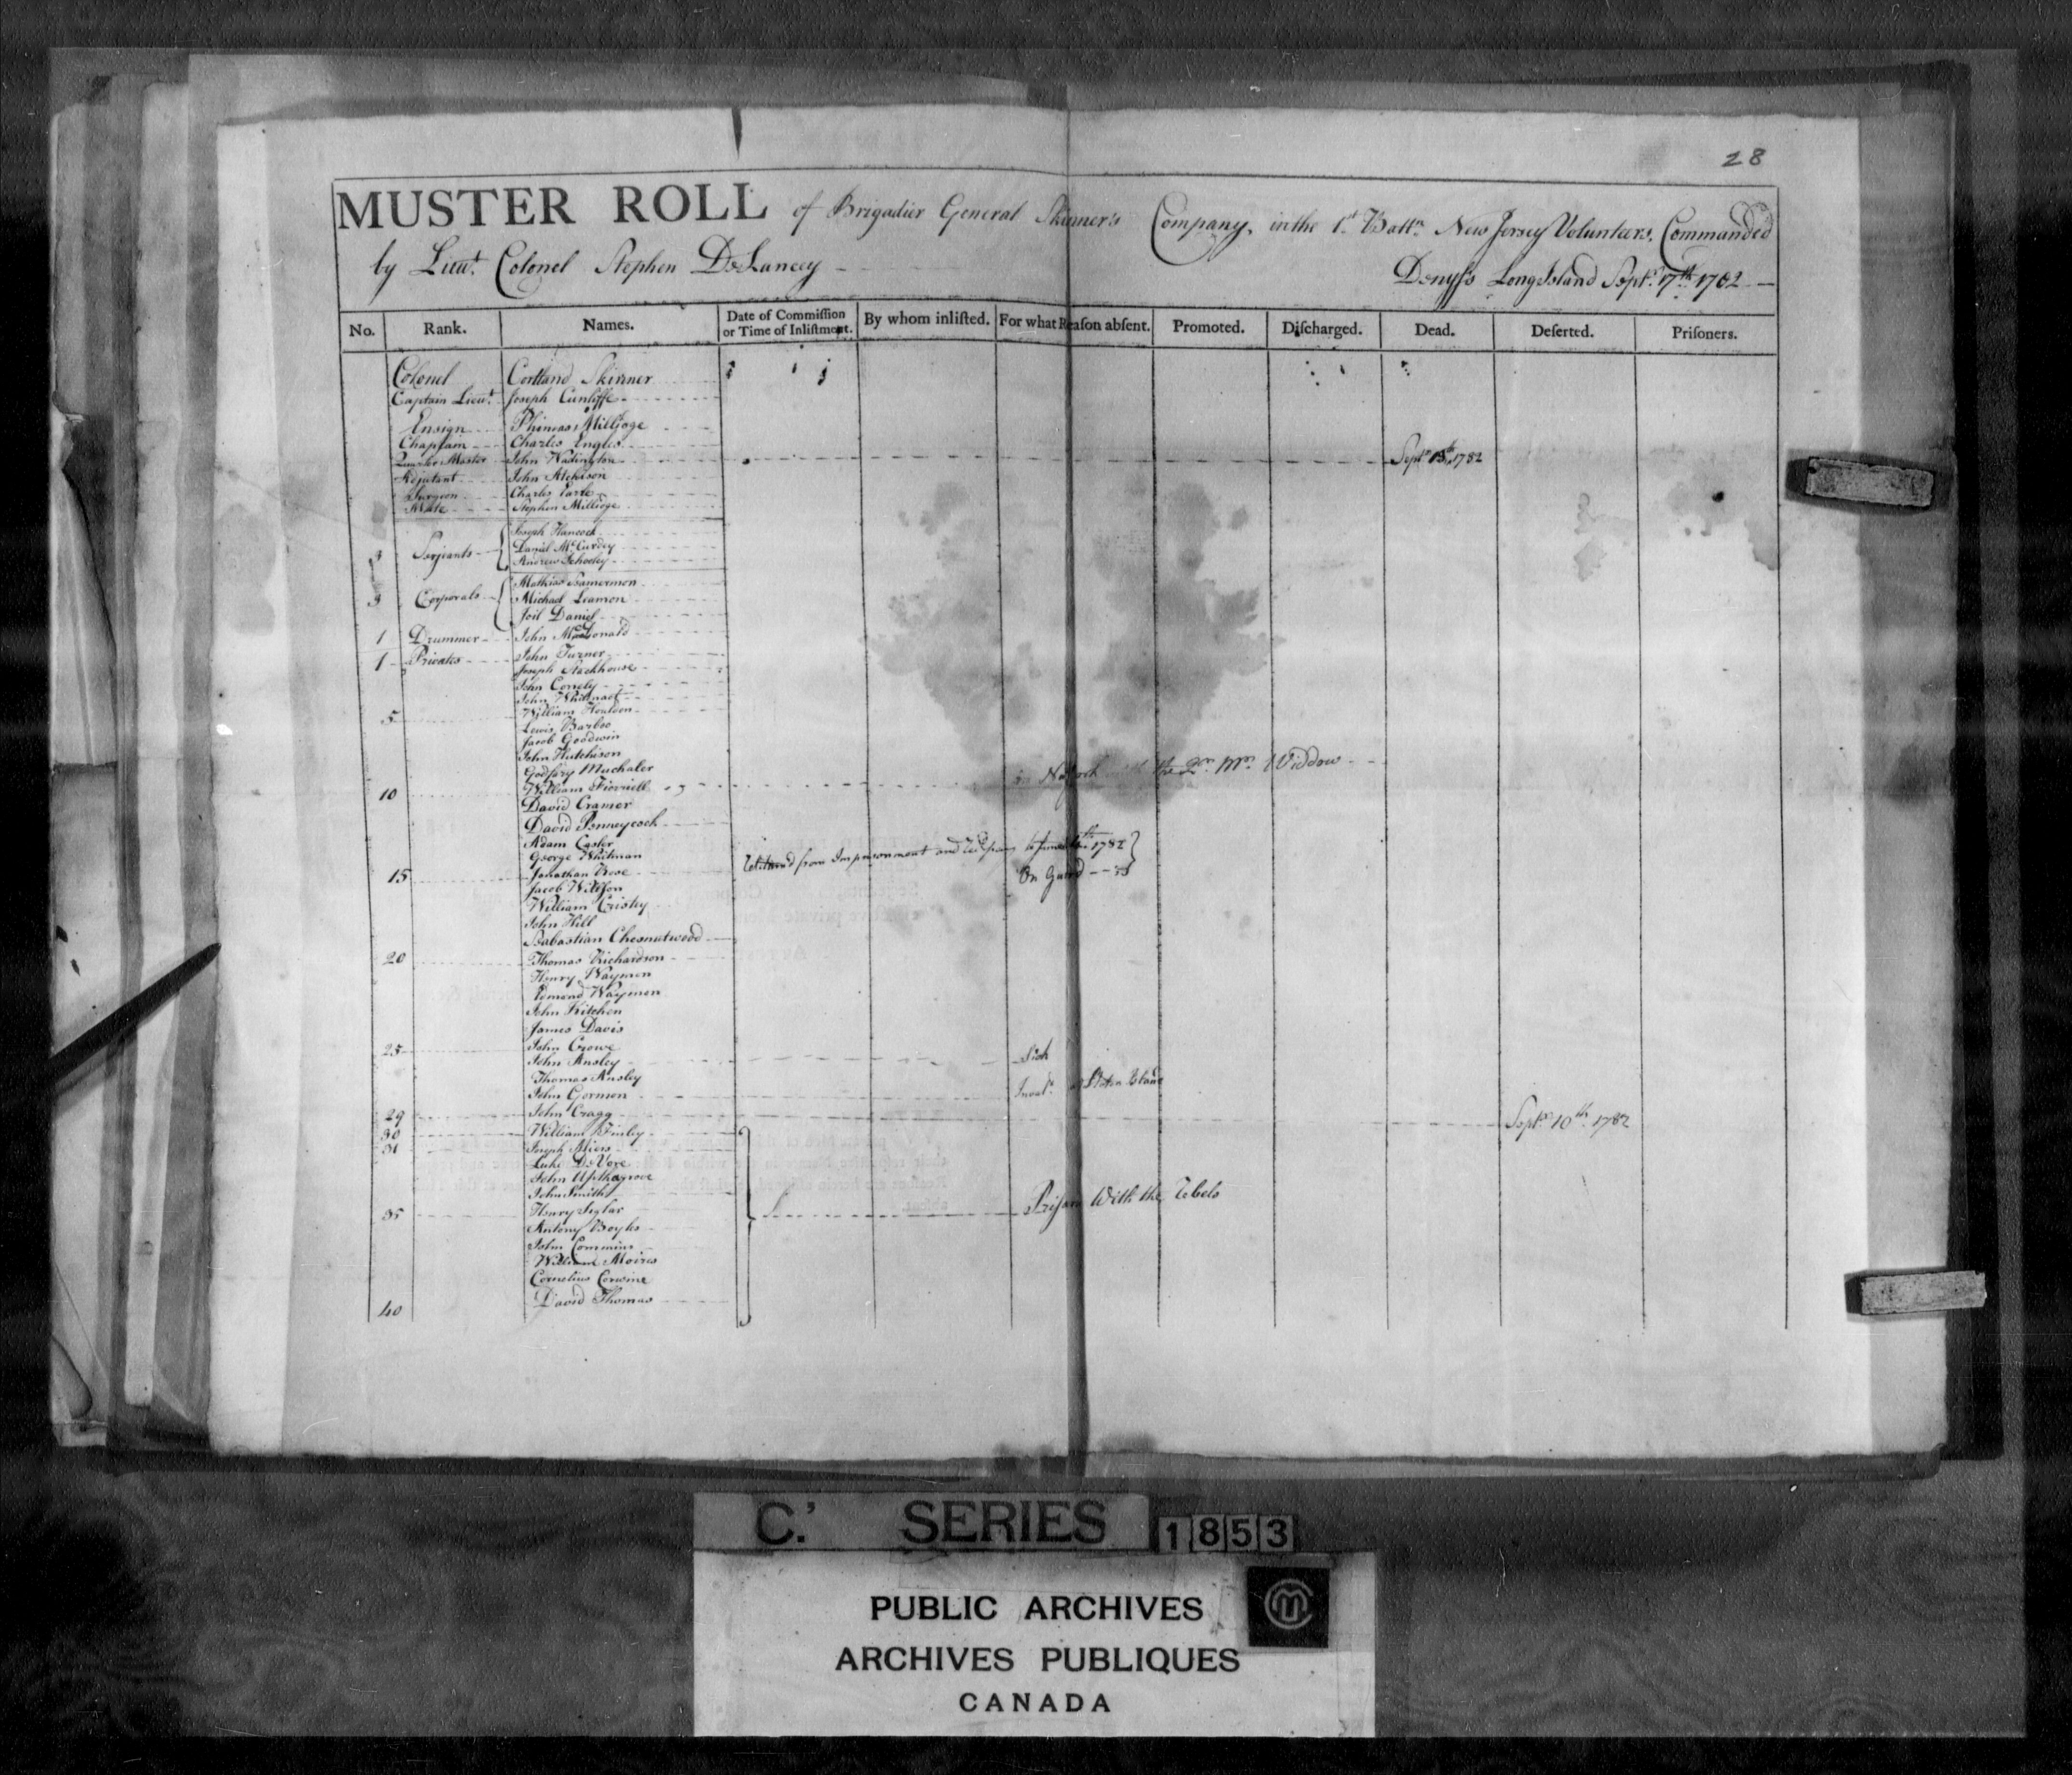 28
MUSTER ROLL of Brigadier General Skinner's Company, in the 1st Battn New Jersey Volunteers, Commanded
by Lieut. Colonel Stephen DeLancey
Denyss Long Island Sept. 17th 1782
No. Rank. Names. Date of Commiſſion or Time of Inliſtment. By whom inliſted. For what Reaſon abſent. Promoted. Diſcharged. Dead. Deſerted. Priſoners.
Colonel Cortland Skinner
Captain Lieut. Joseph Cunliffe
Ensign Phineas Millidge
Chaplain Charles Engles
Quarter Master John Wadington Sept. 13th 1782
Adjutant John Atchison
Surgeon Charles Earle
Mate Stephen Millidge
Joseph Hancock
3 Serjeants Daniel McCurdey
Andrew Schooley
Mathias Samermon
3 Corporals Michael Leamon
Joil Daniel
1 Drummer John MacDonald
1 Privates John Turner
Joseph Stackhouse
John Connely
John Whitmact
5 William Houldon
Lewis Barbee
Jacob Goodwin
John Hutchison
Godfrey Muchaler
10 William in the Qr. Mr. Widdow
David Cramer
David Penneycock
Adam Casler
George Whitman Returnd from Imprisonment and to June 1782
15 Jonathan Rose On Guard
Jacob Willson
William Cristey
John Hill
Sabastian Chesnutwood
20 Thomas Richardson
Henry Waymen
Edmond Waymen
John Kitchen
James Davis
25 John Crowe
John Ansley Sick
Thomas Ansley
John Gormon Inval. at Staten Island
29 John Cragg Sept. 10th 1782
30 William Finley
31 Joseph Miers
Luke DeVore
John Upthagrove
John Smith
35 Henry Siglar Prisoner With the Rebels
Antony Boyles
John Commins
William Moires
Cornelius Corwine
40 David Thomas
C.' SERIES 1853
PUBLIC ARCHIVES
ARCHIVES PUBLIQUES
CANADA